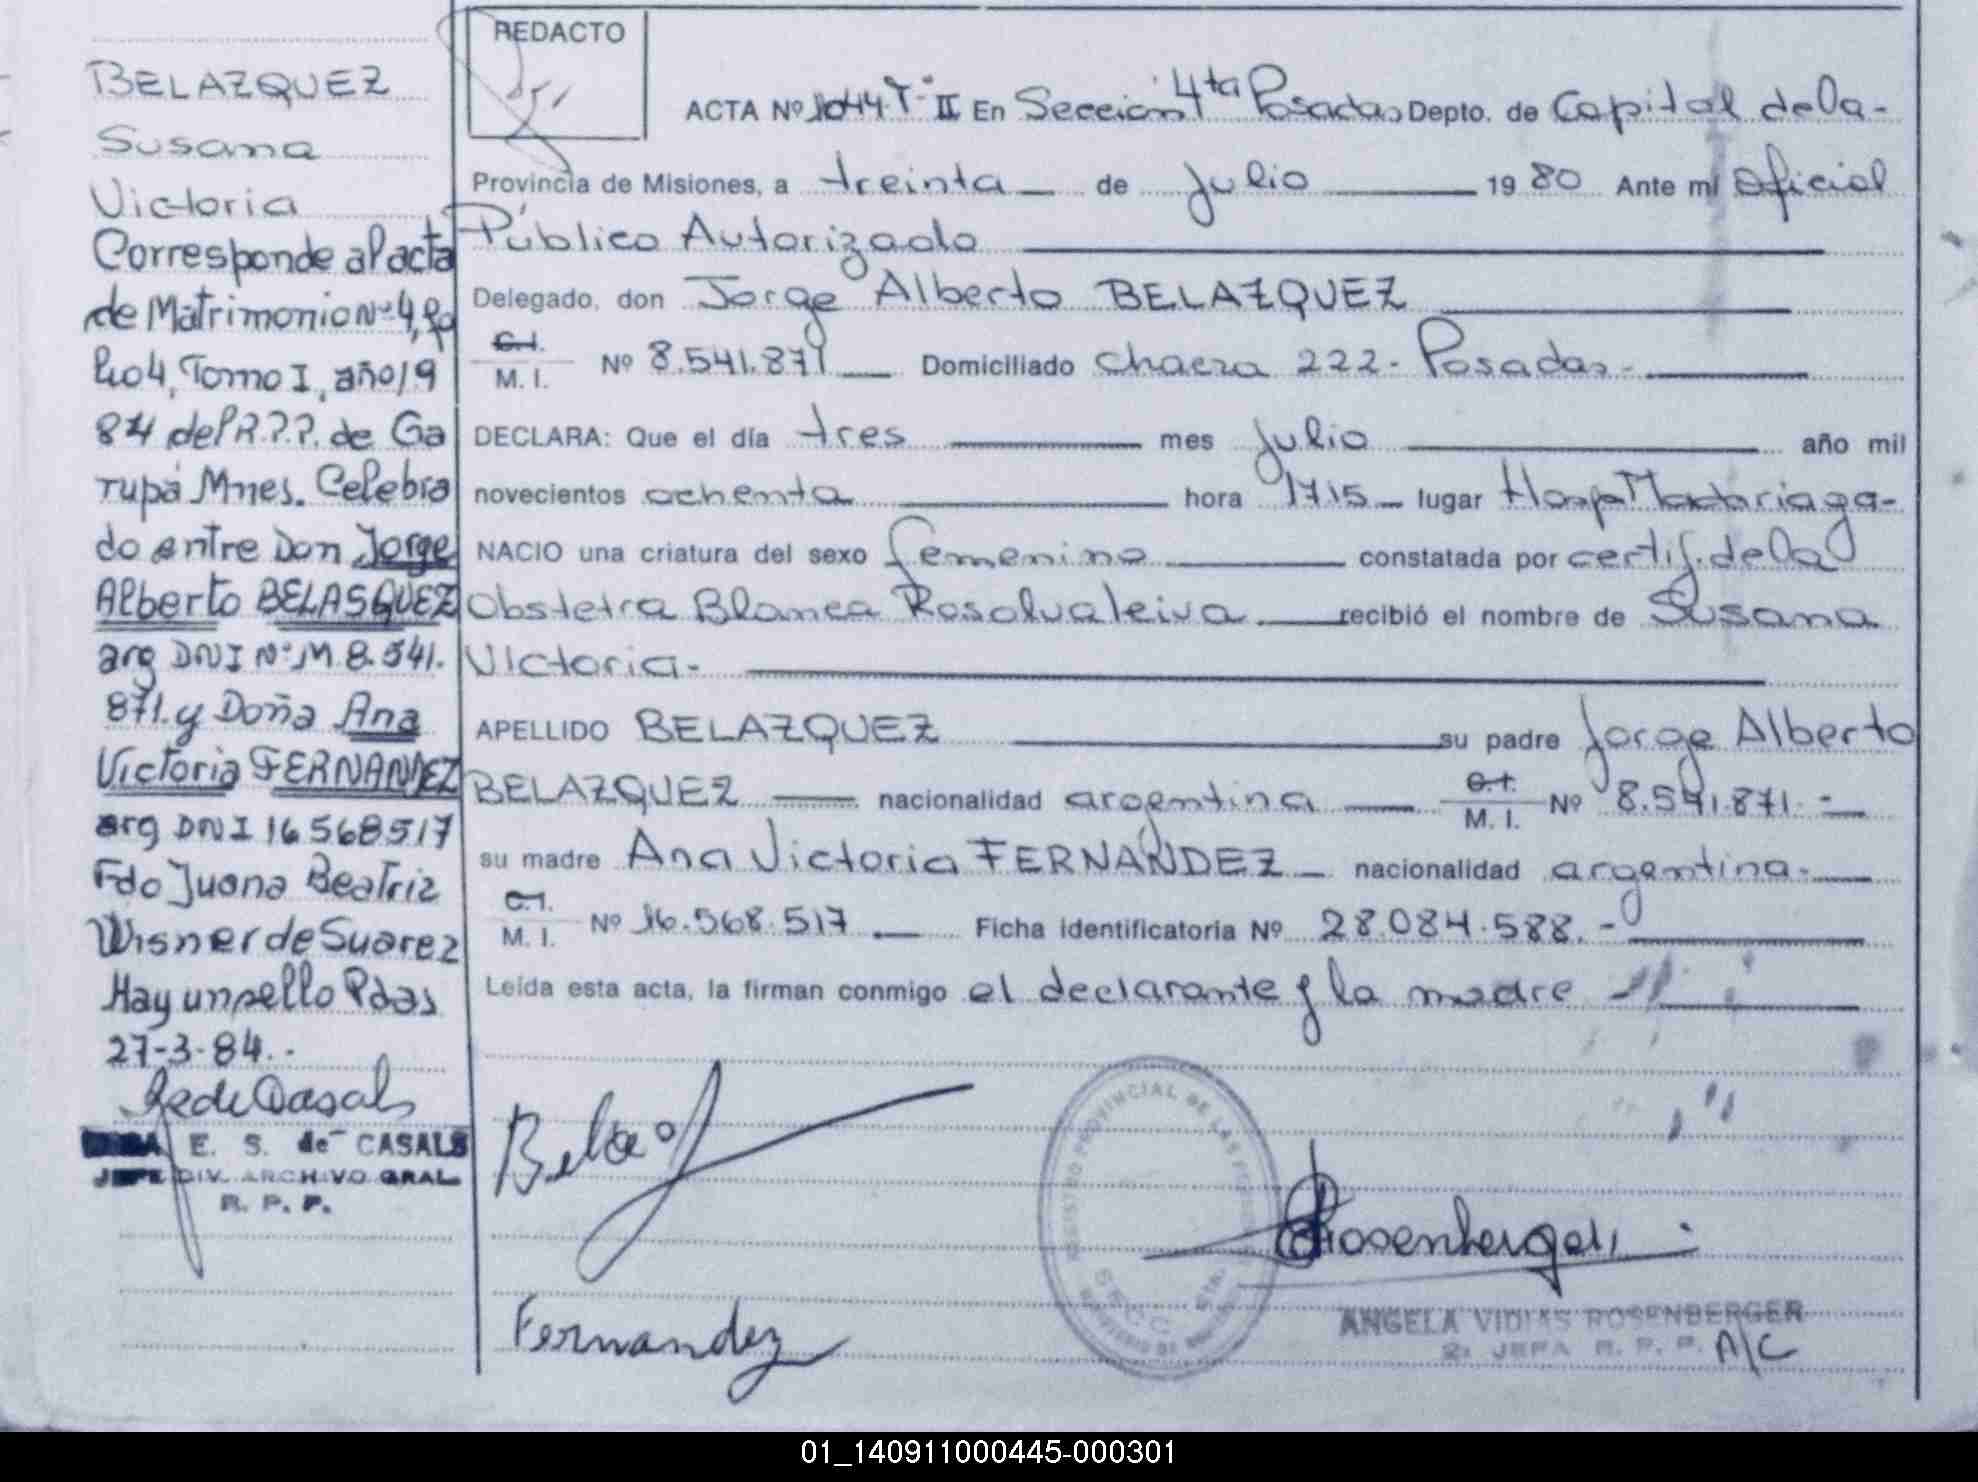 BELAZQUEZ
Susana
Victoria
Corresponde al acta
de Matrimonio Nº 4, fo
lio 4, Tomo I, año 19
84 del R.P.P. de Ga
rupá Mnes. Celebra
do entre Don Jorge
Alberto BELASQUEZ
arg DNI Nº M 8.541.
871. y Doña Ana
Victoria FERNANDEZ
arg DNI 16568517
Fdo Juana Beatriz
Wisner de Suarez
Hay un sello Pdas
27-3-84.-
E. S. de CASALS
JEFE DIV. ARCHIVO GRAL.
R. P. P.
REDACTO
ACTA Nº 1044 Tº II En Sección 4ta Posadas Depto. de Capital de la-
Provincia de Misiones, a treinta de Julio 1980 Ante mí Oficial
Público Autorizado
Delegado, don Jorge Alberto BELAZQUEZ
C.I.
M. I. Nº 8.541.871 Domiciliado Chacra 222- Posadas-
DECLARA: Que el día tres mes Julio año mil
novecientos ochenta hora 1715 lugar Hosp Madariaga-
NACIO una criatura del sexo femenino constatada por certif. de la
Obstetra Blanca Rosalvaleiva recibió el nombre de Susana
Victoria-
APELLIDO BELAZQUEZ su padre Jorge Alberto
BELAZQUEZ nacionalidad argentina C.I.
M. I. Nº 8.541.871.-
su madre Ana Victoria FERNANDEZ nacionalidad argentina-
C.I.
M. I. Nº 16.568.517 Ficha identificatoria Nº 28.084.588.-
Leída esta acta, la firman conmigo el declarante y la madre
REGISTRO PROVINCIAL DE LAS
SECC
Rosenberger
Fernandez
ANGELA VIDIAS ROSENBERGER
2º JEFA R. P. P. A/C
01_140911000445-000301